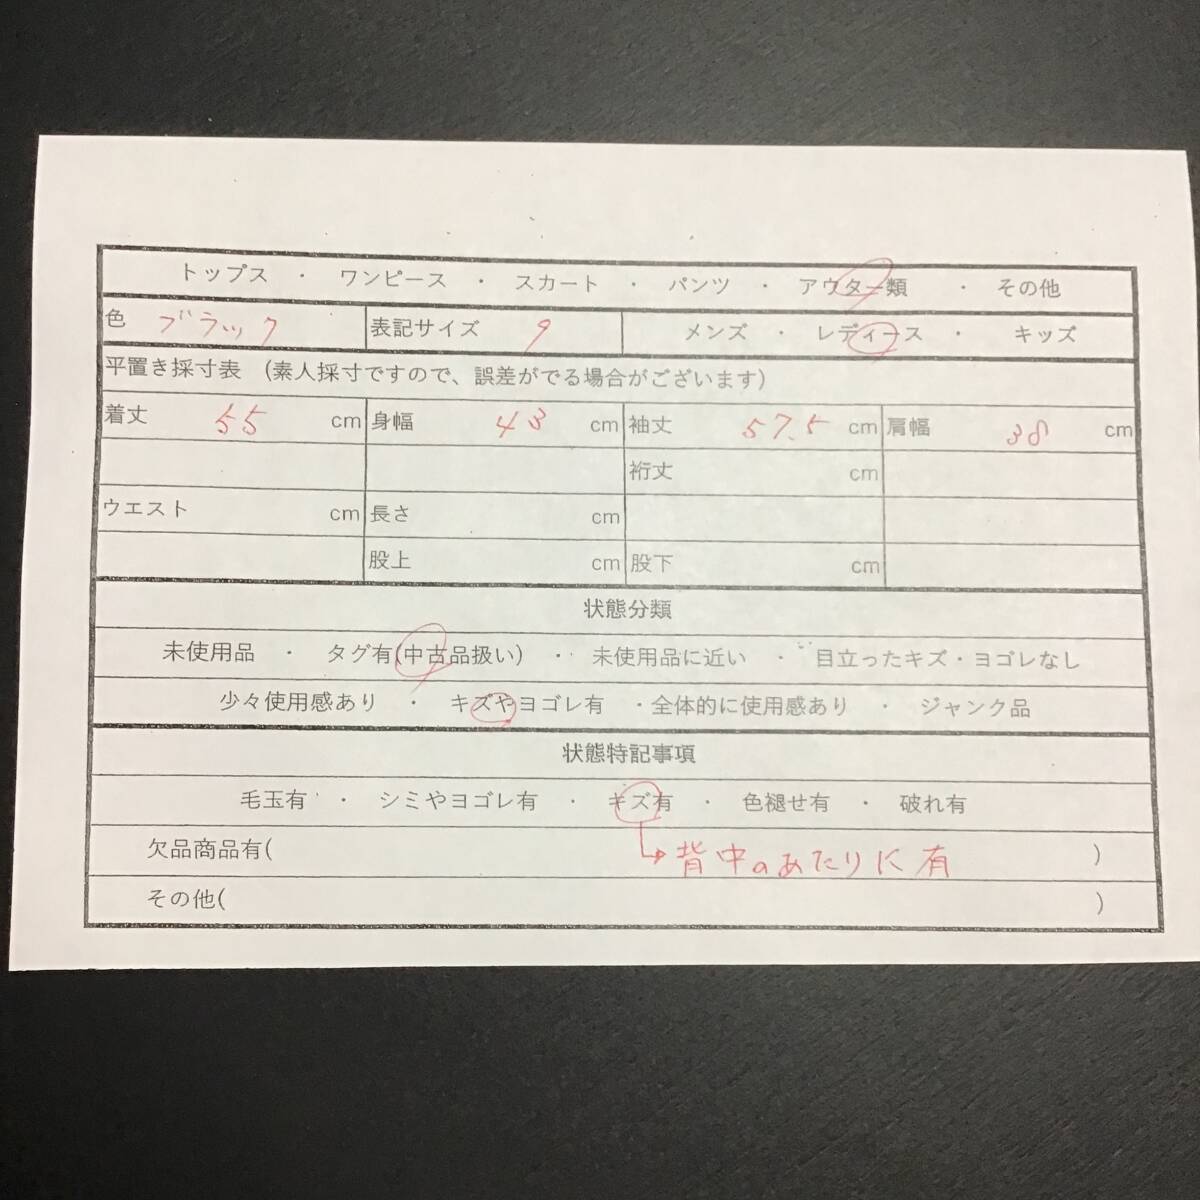 トップス ・ ワンピース ・ スカート ・ パンツ ・ アウター類 ・ その他
色 ブラック 表記サイズ 9 メンズ ・ レディース ・ キッズ
平置き採寸表 (素人採寸ですので、誤差がでる場合がございます)
着丈 55 cm 身幅 43 cm 袖丈 57.5 cm 肩幅 38 cm
裄丈 cm
ウエスト cm 長さ cm
股上 cm 股下 cm
状態分類
未使用品 ・ タグ有(中古品扱い) ・ 未使用品に近い ・ 目立ったキズ・ヨゴレなし
少々使用感あり ・ キズやヨゴレ有 ・全体的に使用感あり ・ ジャンク品
状態特記事項
毛玉有 ・ シミやヨゴレ有 ・ キズ有 ・ 色褪せ有 ・ 破れ有
欠品商品有( )
→背中のあたりに有
その他( )